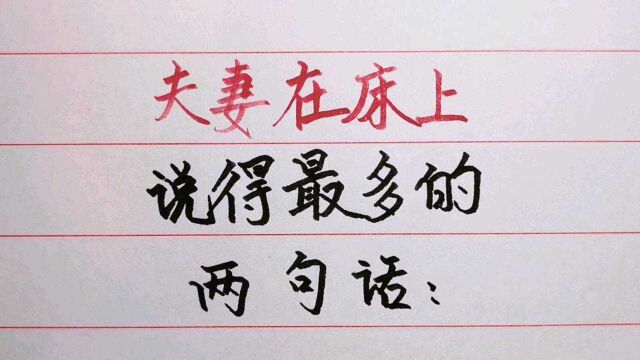 夫妻在床上
说得最多的
两句话：